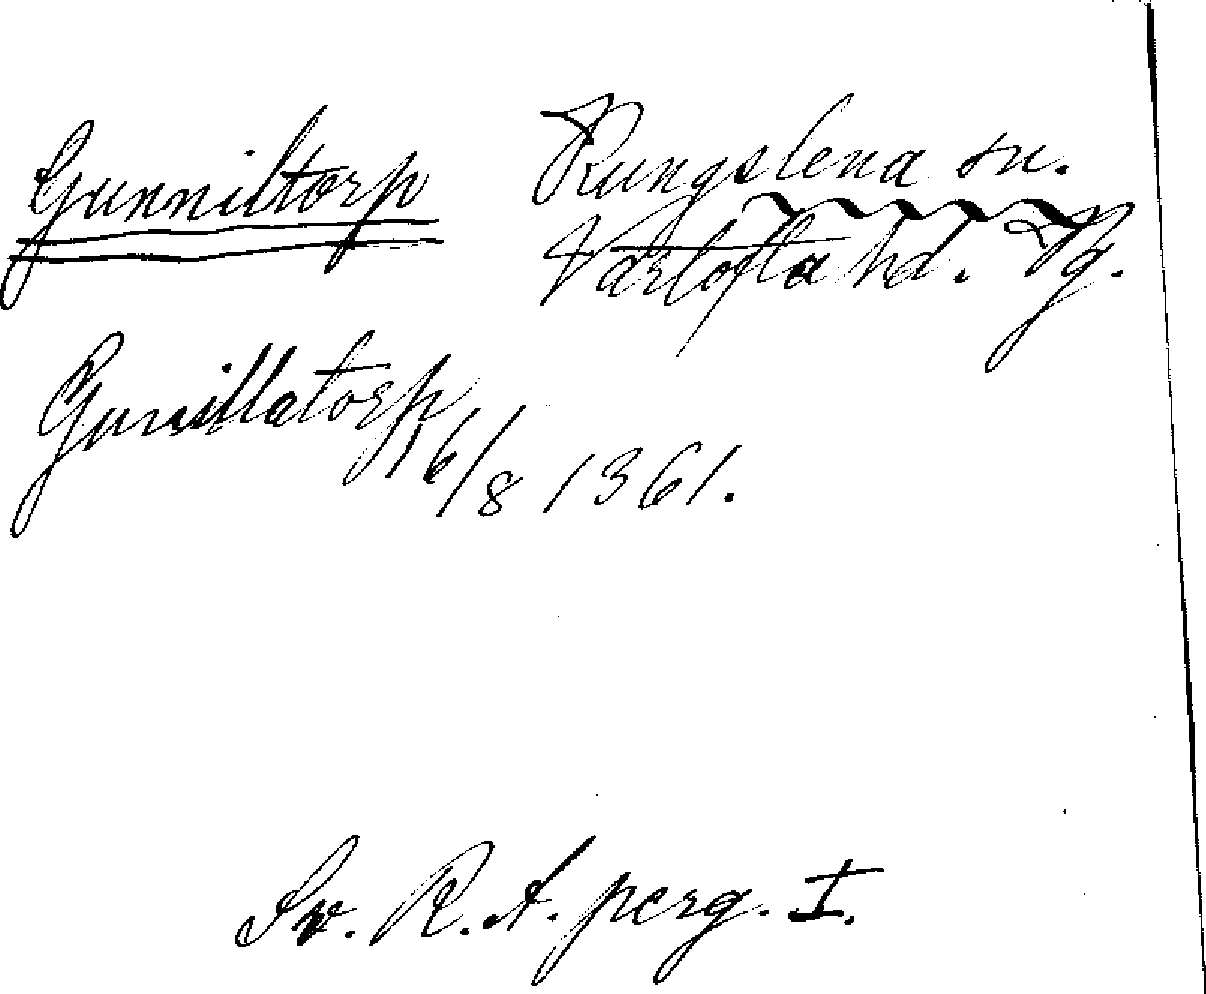 Gunniltorp Kungslena sn.
Vartofta hd. Vg.
Gunillatorp
16/8 1361.
Sv. R. A. perg. I.